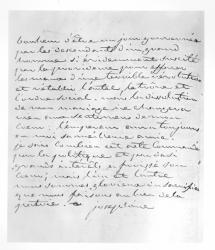 bonheur d'être un jour gouvernée
par les descendants d'un grand
homme si évidemment suscité
par la providence pour effacer
les maux d'une terrible révolution
et rétablir l'autel, le trône et
l'ordre social. mais la dissolution
de mon mariage ne changera
rien aux sentimens de mon
coeur: l'empereur aura toujours
en moi sa meilleure amie.
je sais combien cet acte commandé
par la politique et par de si
grands intérêts a froissé son
coeur; mais l'un et l'autre
nous sommes glorieux du sacrifice
que nous faisons au bien de la
patrie.
Joséphine